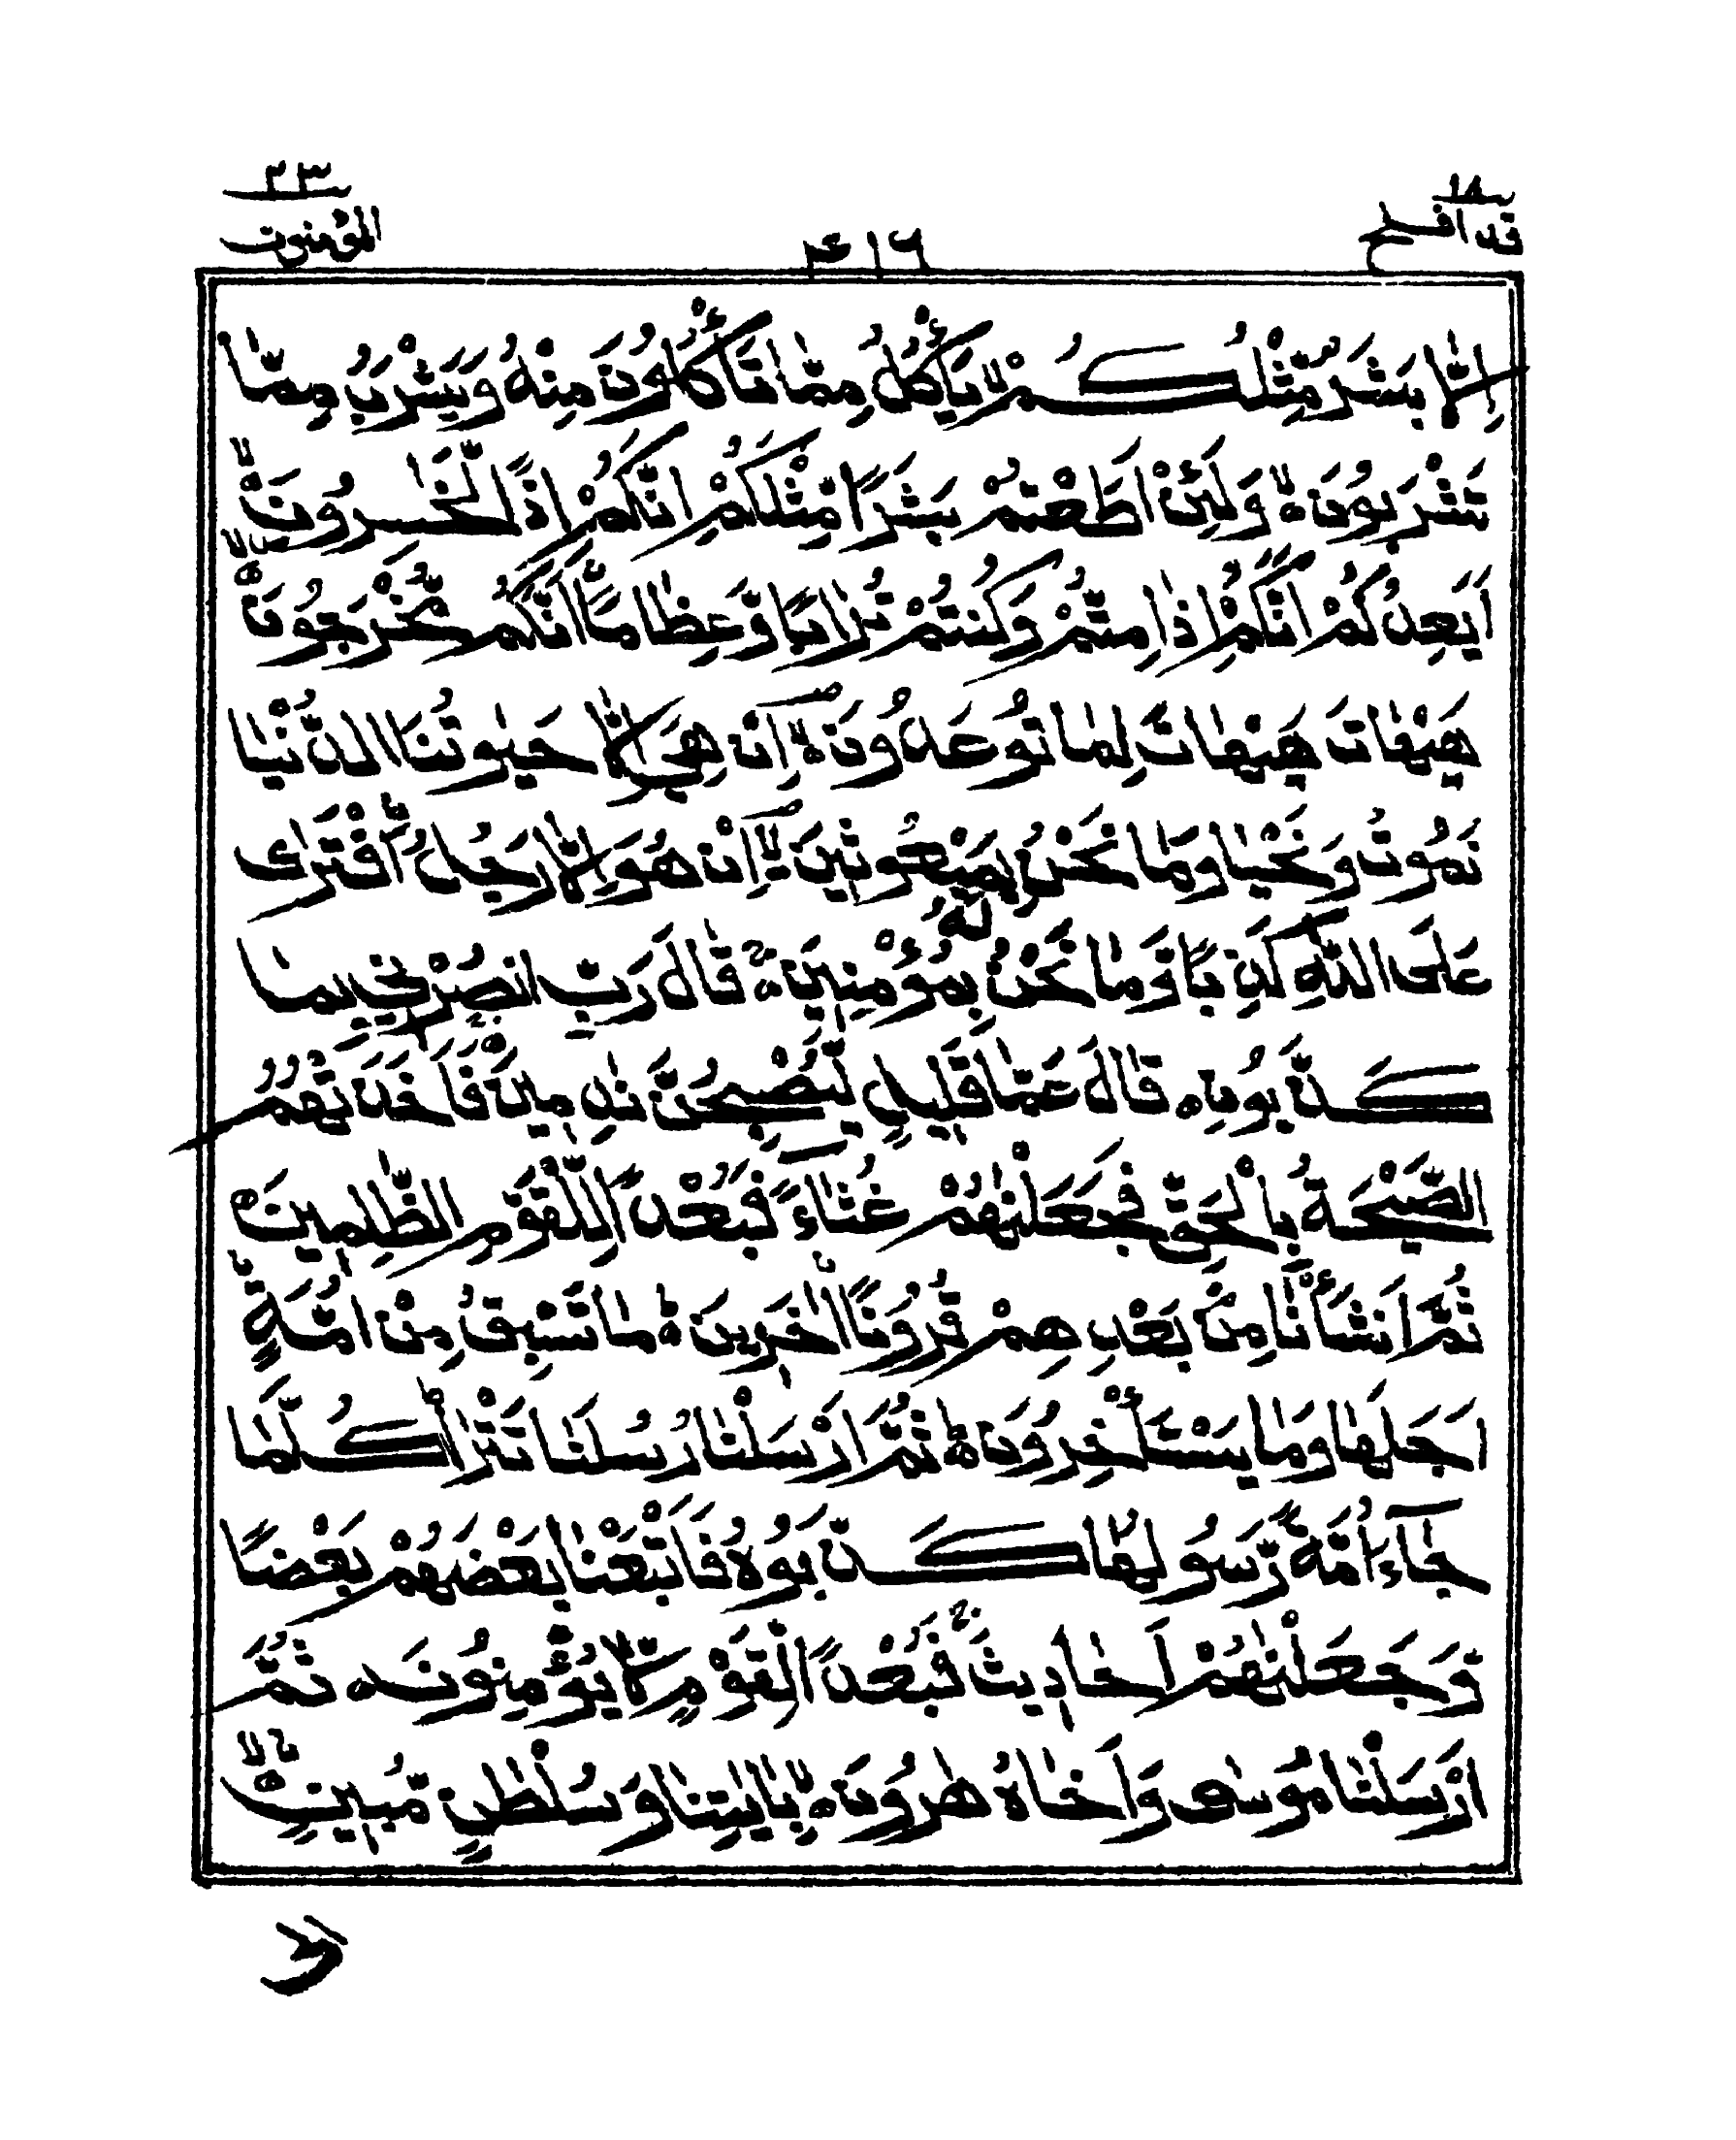 ١٨ ٢٣
قد افلح ٤١٦ المؤمنون
اِلَّا بَشَرٌ مِّثْلُكُمْ ۙ يَاْكُلُ مِمَّا تَاْكُلُوْنَ مِنْهُ وَيَشْرَبُ مِمَّا
تَشْرَبُوْنَ ۙ وَلَئِنْ اَطَعْتُمْ بَشَرًا مِّثْلَكُمْ اِنَّكُمْ اِذًا لَّخٰسِرُوْنَ ۙ
اَيَعِدُكُمْ اَنَّكُمْ اِذَا مِتُّمْ وَكُنْتُمْ تُرَابًا وَّعِظَامًا اَنَّكُمْ مُّخْرَجُوْنَ ۙ
هَيْهَاتَ هَيْهَاتَ لِمَا تُوْعَدُوْنَ ۙ اِنْ هِيَ اِلَّا حَيَاتُنَا الدُّنْيَا
نَمُوْتُ وَنَحْيَا وَمَا نَحْنُ بِمَبْعُوْثِيْنَ ۙ اِنْ هُوَ اِلَّا رَجُلُ ۨافْتَرٰى
عَلَى اللّٰهِ كَذِبًا وَّمَا نَحْنُ لَهٗ بِمُؤْمِنِيْنَ قَالَ رَبِّ انْصُرْنِيْ بِمَا
كَذَّبُوْنِ قَالَ عَمَّا قَلِيْلٍ لَّيُصْبِحُنَّ نٰدِمِيْنَ ۚ فَاَخَذَتْهُمُ
الصَّيْحَةُ بِالْحَقِّ فَجَعَلْنٰهُمْ غُثَآءً ۚ فَبُعْدًا لِّلْقَوْمِ الظّٰلِمِيْنَ
ثُمَّ اَنْشَاْنَا مِنْۢ بَعْدِهِمْ قُرُوْنًا اٰخَرِيْنَ ؕ مَا تَسْبِقُ مِنْ اُمَّةٍ
اَجَلَهَا وَمَا يَسْتَاْخِرُوْنَ ؕ ثُمَّ اَرْسَلْنَا رُسُلَنَا تَتْرَا ؕ كُلَّمَا
جَآءَ اُمَّةً رَّسُوْلُهَا كَذَّبُوْهُ فَاَتْبَعْنَا بَعْضَهُمْ بَعْضًا
وَّجَعَلْنٰهُمْ اَحَادِيْثَ ۚ فَبُعْدًا لِّقَوْمٍ لَّا يُؤْمِنُوْنَ ثُمَّ
اَرْسَلْنَا مُوْسٰى وَاَخَاهُ هٰرُوْنَ ۙ بِاٰيٰتِنَا وَسُلْطٰنٍ مُّبِيْنٍ ۙ